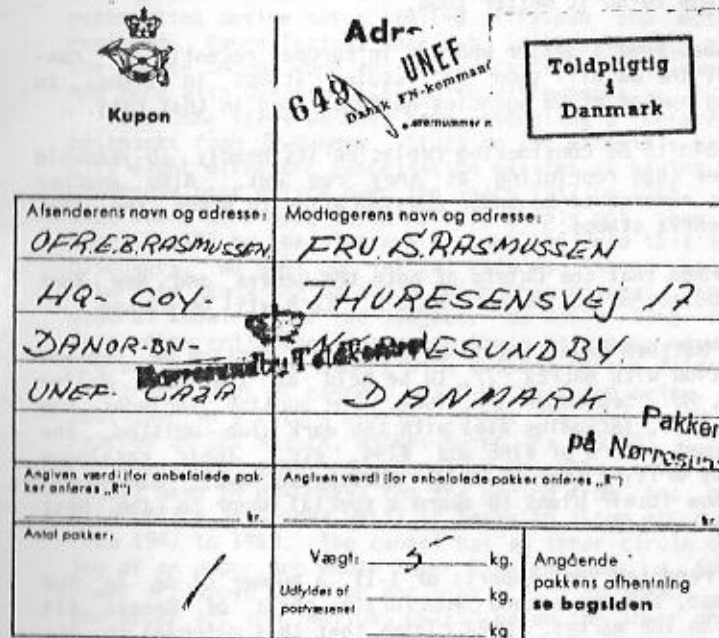 Kupon
649
UNEF
Dansk FN-kommando
Toldpligtig
i
Danmark
Afsenderens navn og adresse:
OFR.E.B.RASMUSSEN.
HQ- COY-
DANOR-BN-
UNEF. GAZA
Modtagerens navn og adresse:
FRU S. RASMUSSEN
THURESENSVEJ 17
NØRRESUNDBY
DANMARK
Nørresundby Toldkontrol
Pakken
på Nørresun
Angiven værdi (for anbefalede pak-
ker anføres „R")
kr.
Angiven værdi (for anbefalede pakker anføres „R")
kr.
Antal pakker:
1
Vægt: 5 kg.
Udfyldes af
postvæsenet
kg.
kg.
Angående
pakkens afhentning
se bagsiden